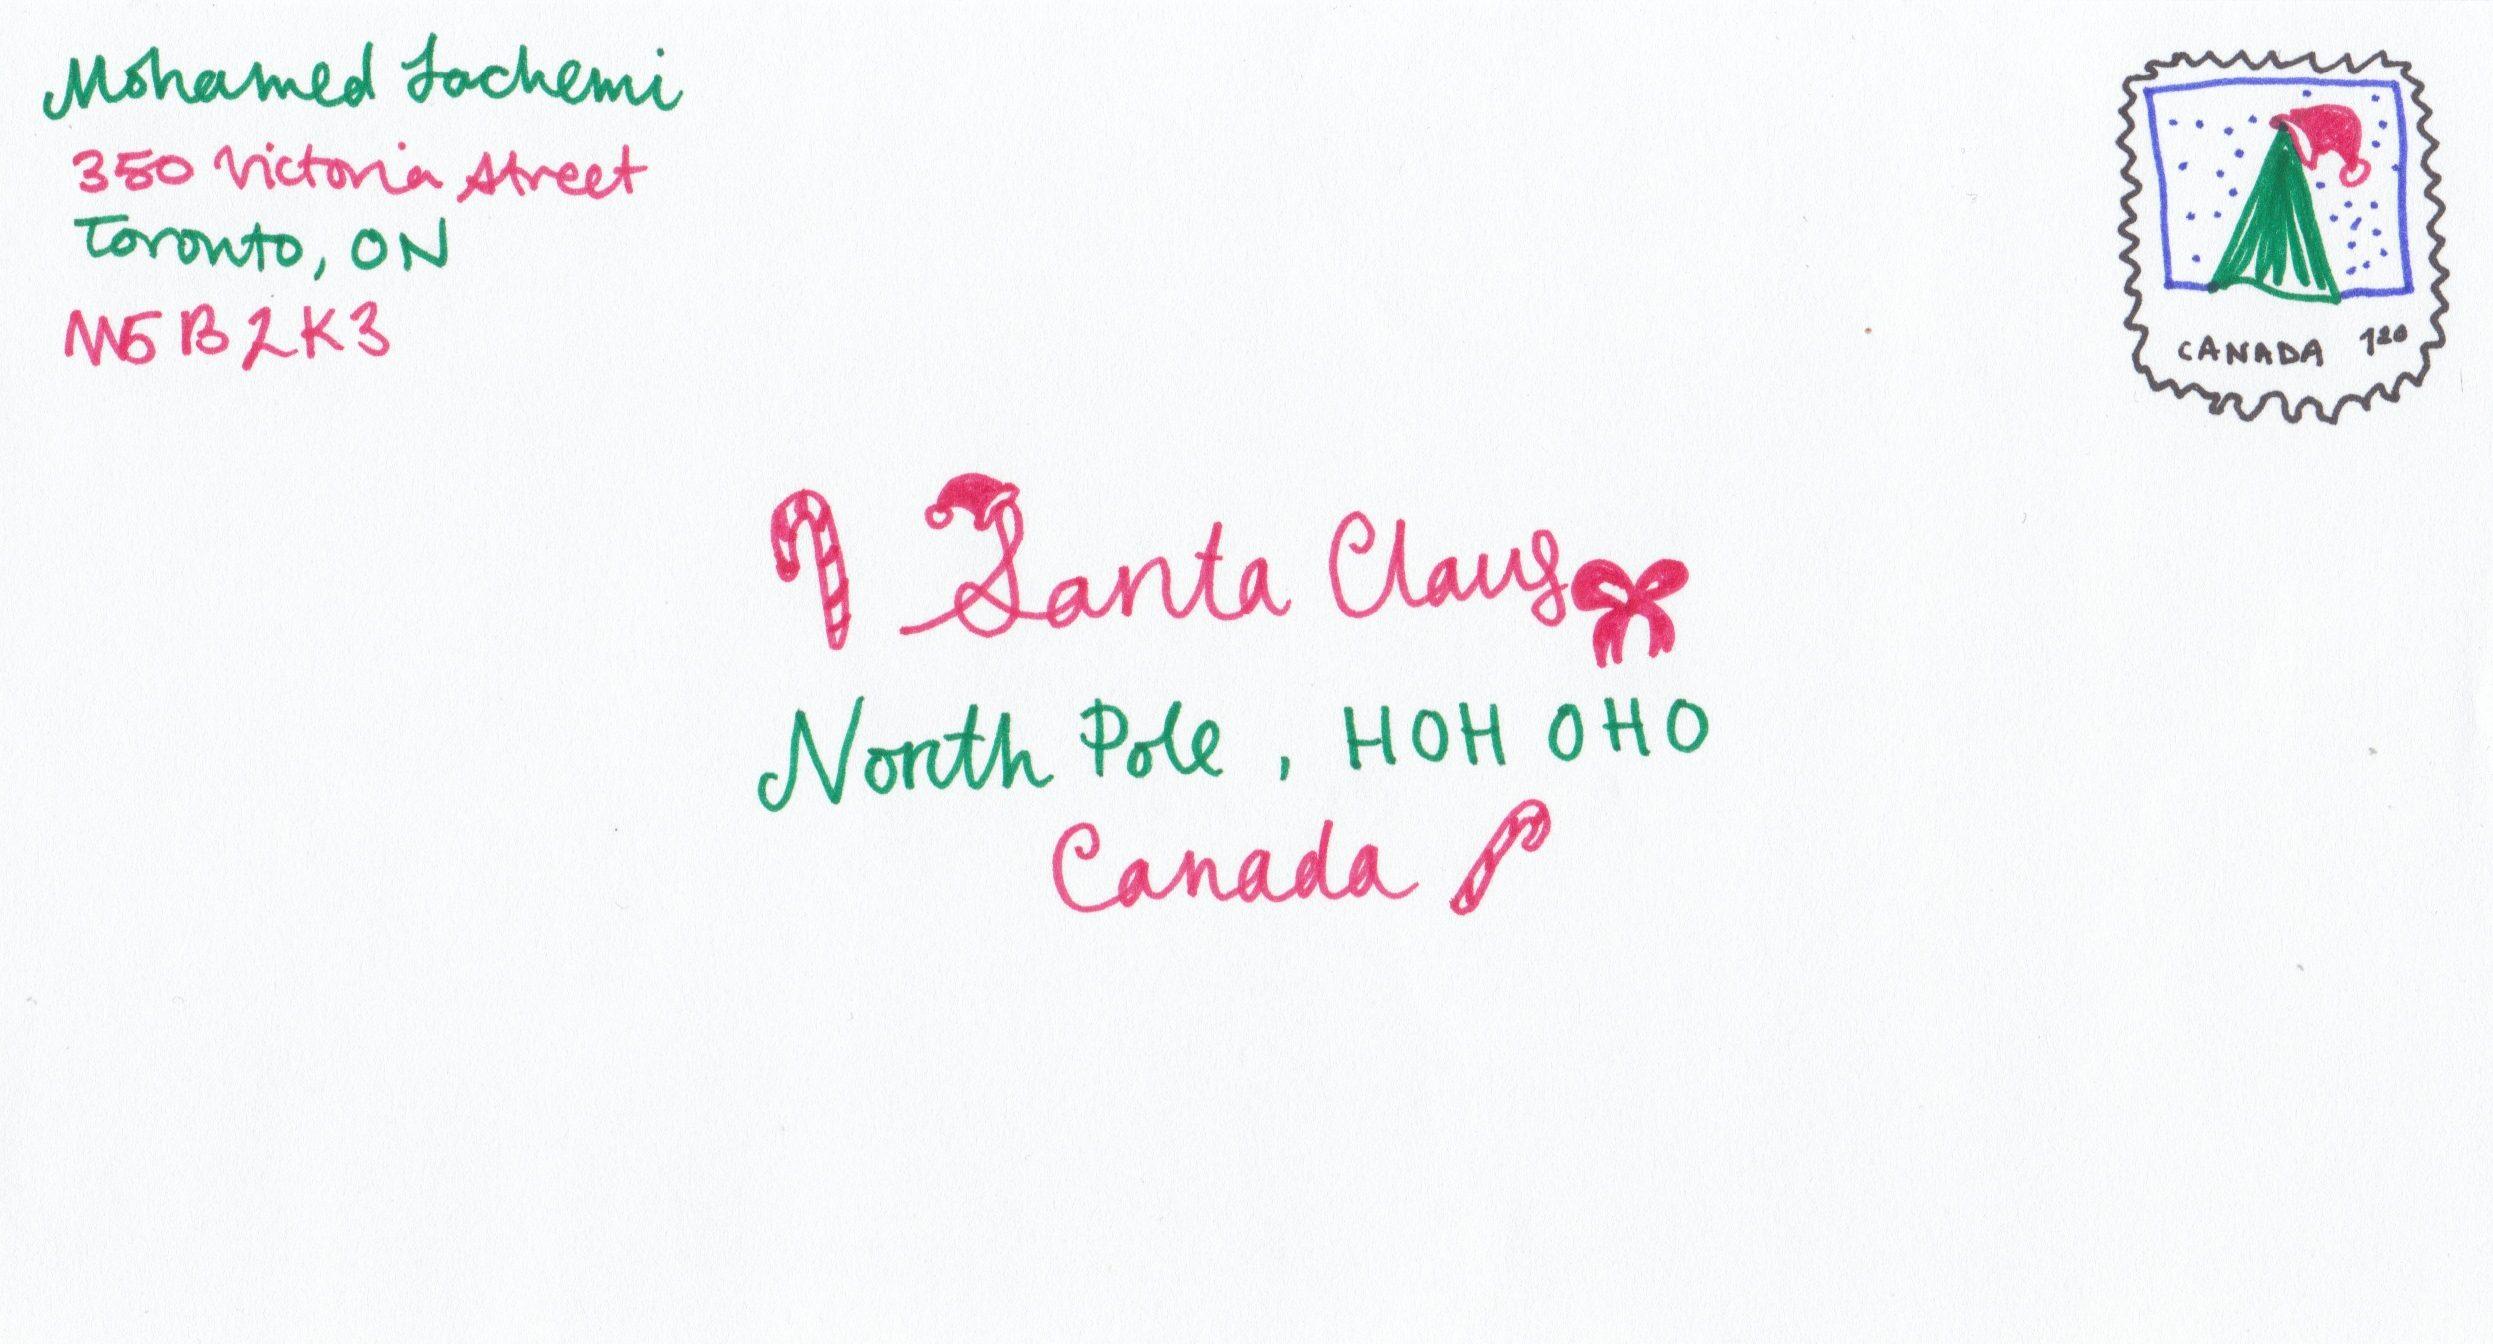 Mohamed Lachemi
350 Victoria Street
Toronto, ON
M5B 2K3
CANADA 1²⁰
Santa Claus
North Pole, HOH OHO
Canada